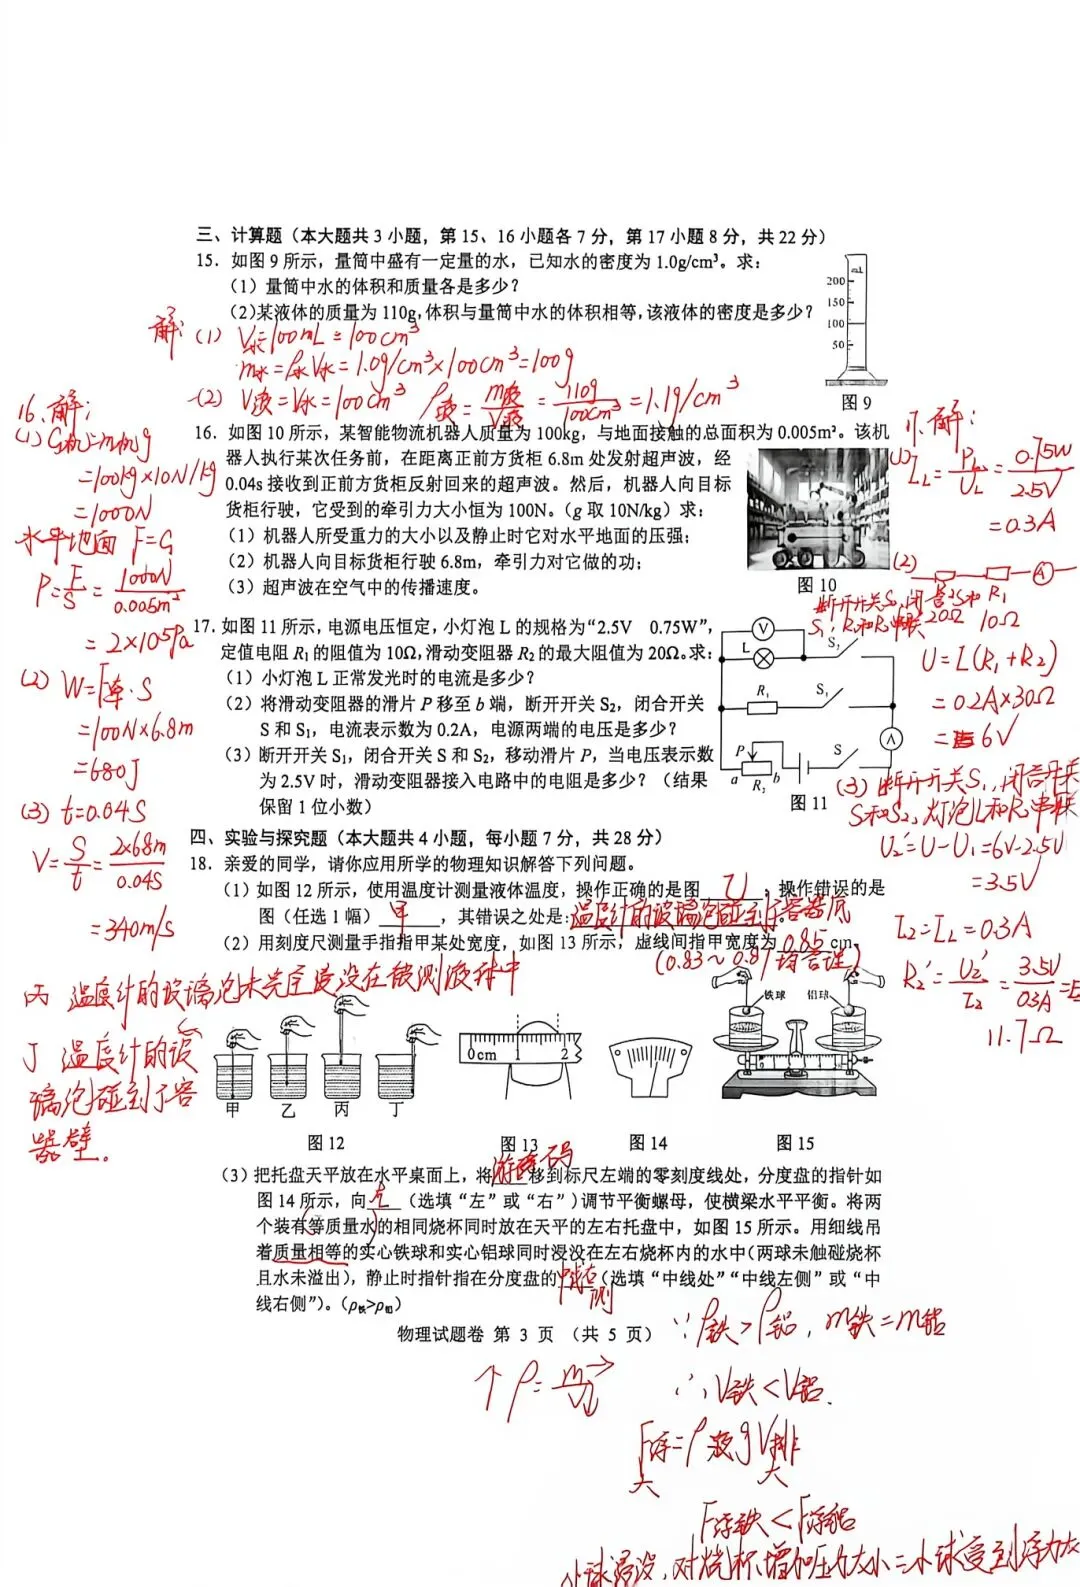 三、计算题（本大题共 3 小题，第 15、16 小题各 7 分，第 17 小题 8 分，共 22 分）
15．如图 9 所示，量筒中盛有一定量的水，已知水的密度为 1.0g/cm³。求：
（1）量筒中水的体积和质量各是多少？
（2）某液体的质量为 110g，体积与量筒中水的体积相等，该液体的密度是多少？
mL
200
150
100
50
图 9
解：(1) V水=100mL=100cm³
m水=ρ水V水=1.0g/cm³×100cm³=100g
(2) V液=V水=100cm³ ρ液=m液/V液=110g/100cm³=1.1g/cm³
16．如图 10 所示，某智能物流机器人质量为 100kg，与地面接触的总面积为 0.005m²。该机
器人执行某次任务前，在距离正前方货柜 6.8m 处发射超声波，经
0.04s 接收到正前方货柜反射回来的超声波。然后，机器人向目标
货柜行驶，它受到的牵引力大小恒为 100N。（g 取 10N/kg）求：
（1）机器人所受重力的大小以及静止时它对水平地面的压强；
（2）机器人向目标货柜行驶 6.8m，牵引力对它做的功；
（3）超声波在空气中的传播速度。
图 10
16、解：
(1) G机=m机g
=100kg×10N/kg
=1000N
水平地面 F=G
P=F/S=1000N/0.005m²
=2×10⁵Pa
(2) W=F牵·S
=100N×6.8m
=680J
(3) t=0.04S
V=S/t=2×6.8m/0.04S
=340m/s
17．如图 11 所示，电源电压恒定，小灯泡 L 的规格为“2.5V 0.75W”，
定值电阻 R₁的阻值为 10Ω，滑动变阻器 R₂的最大阻值为 20Ω。求：
（1）小灯泡 L 正常发光时的电流是多少？
（2）将滑动变阻器的滑片 P 移至 b 端，断开开关 S₂，闭合开关
S 和 S₁，电流表示数为 0.2A，电源两端的电压是多少？
（3）断开开关 S₁，闭合开关 S 和 S₂，移动滑片 P，当电压表示数
为 2.5V 时，滑动变阻器接入电路中的电阻是多少？（结果
保留 1 位小数）
V
L
S₂
R₁
S₁
A
P
S
a
R₂
b
图 11
17、解：
(1) I_L=P_L/U_L=0.75W/2.5V
=0.3A
(2)
A
断开开关S₂，闭合S和
S₁，R₁和R₂串联
R₁
20Ω 10Ω
U=I(R₁+R₂)
=0.2A×30Ω
=6V
(3) 断开开关S₁，闭合开关
S和S₂，灯泡L和R₂串联
U₂'=U-U₁=6V-2.5V
=3.5V
I₂=I_L=0.3A
R₂'=U₂'/I₂=3.5V/0.3A=
11.7Ω
四、实验与探究题（本大题共 4 小题，每小题 7 分，共 28 分）
18．亲爱的同学，请你应用所学的物理知识解答下列问题。
（1）如图 12 所示，使用温度计测量液体温度，操作正确的是图 乙 ，操作错误的是
图（任选 1 幅） 甲 ，其错误之处是：温度计的玻璃泡碰到了容器底。
（2）用刻度尺测量手指指甲某处宽度，如图 13 所示，虚线间指甲宽度为 0.85 cm。
(0.83～0.87均合理)
丙 温度计的玻璃泡未完全浸没在被测液体中
丁 温度计的玻
璃泡碰到了容
器壁。
甲 乙 丙 丁
图 12
0cm 1 2
图 13
图 14
铁球 铝球
图 15
（3）把托盘天平放在水平桌面上，将 游码 移到标尺左端的零刻度线处，分度盘的指针如
图 14 所示，向 左 （选填“左”或“右”）调节平衡螺母，使横梁水平平衡。将两
个装有等质量水的相同烧杯同时放在天平的左右托盘中，如图 15 所示。用细线吊
着质量相等的实心铁球和实心铝球同时浸没在左右烧杯内的水中（两球未触碰烧杯
且水未溢出），静止时指针指在分度盘的 中线右侧 （选填“中线处”“中线左侧”或“中
线右侧”）。（ρ铁>ρ铝）
物理试题卷 第 3 页 （共 5 页）
∵ρ铁>ρ铝，m铁=m铝
↑ρ=m→/V↓
∴V铁<V铝
F浮=ρ液gV排
大 大
F浮铁<F浮铝
小球浸没，对烧杯增加压力大小=小球受到浮力大